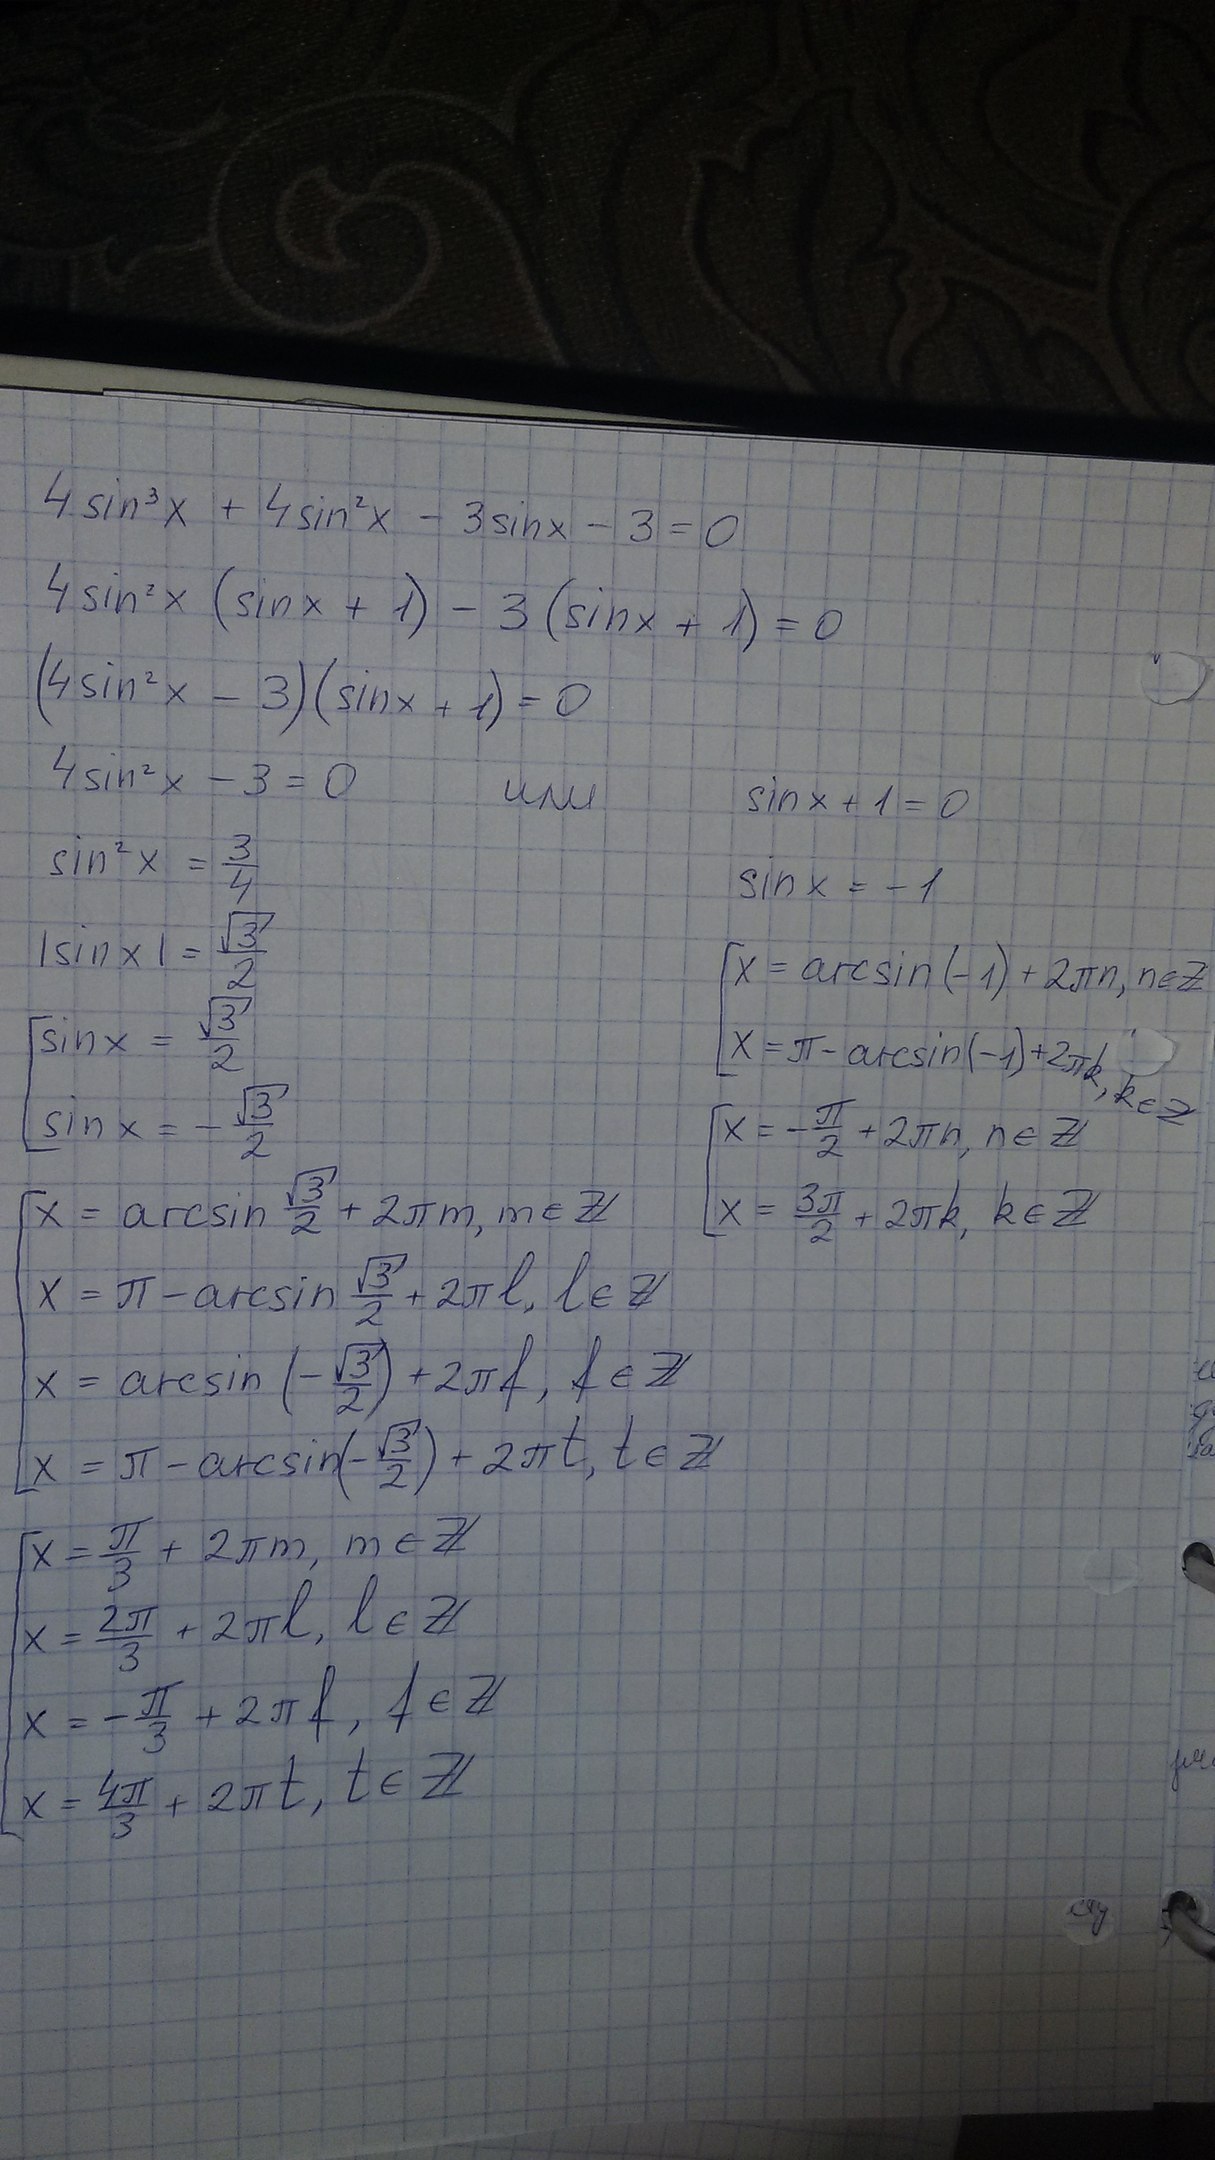 4sin³x + 4sin²x - 3sinx - 3 = 0
4sin²x (sinx + 1) - 3 (sinx + 1) = 0
(4sin²x - 3)(sinx + 1) = 0
4sin²x - 3 = 0 или sinx + 1 = 0
sin²x = 3/4
|sinx| = √3/2
[sinx = √3/2
sinx = -√3/2
[x = arcsin √3/2 + 2πm, m∈ℤ
x = π - arcsin √3/2 + 2πl, l∈ℤ
x = arcsin (-√3/2) + 2πf, f∈ℤ
x = π - arcsin(-√3/2) + 2πt, t∈ℤ
[x = π/3 + 2πm, m∈ℤ
x = 2π/3 + 2πl, l∈ℤ
x = -π/3 + 2πf, f∈ℤ
x = 4π/3 + 2πt, t∈ℤ
sinx = -1
[x = arcsin(-1) + 2πn, n∈ℤ
x = π - arcsin(-1) + 2πk, k∈ℤ
[x = -π/2 + 2πn, n∈ℤ
x = 3π/2 + 2πk, k∈ℤ